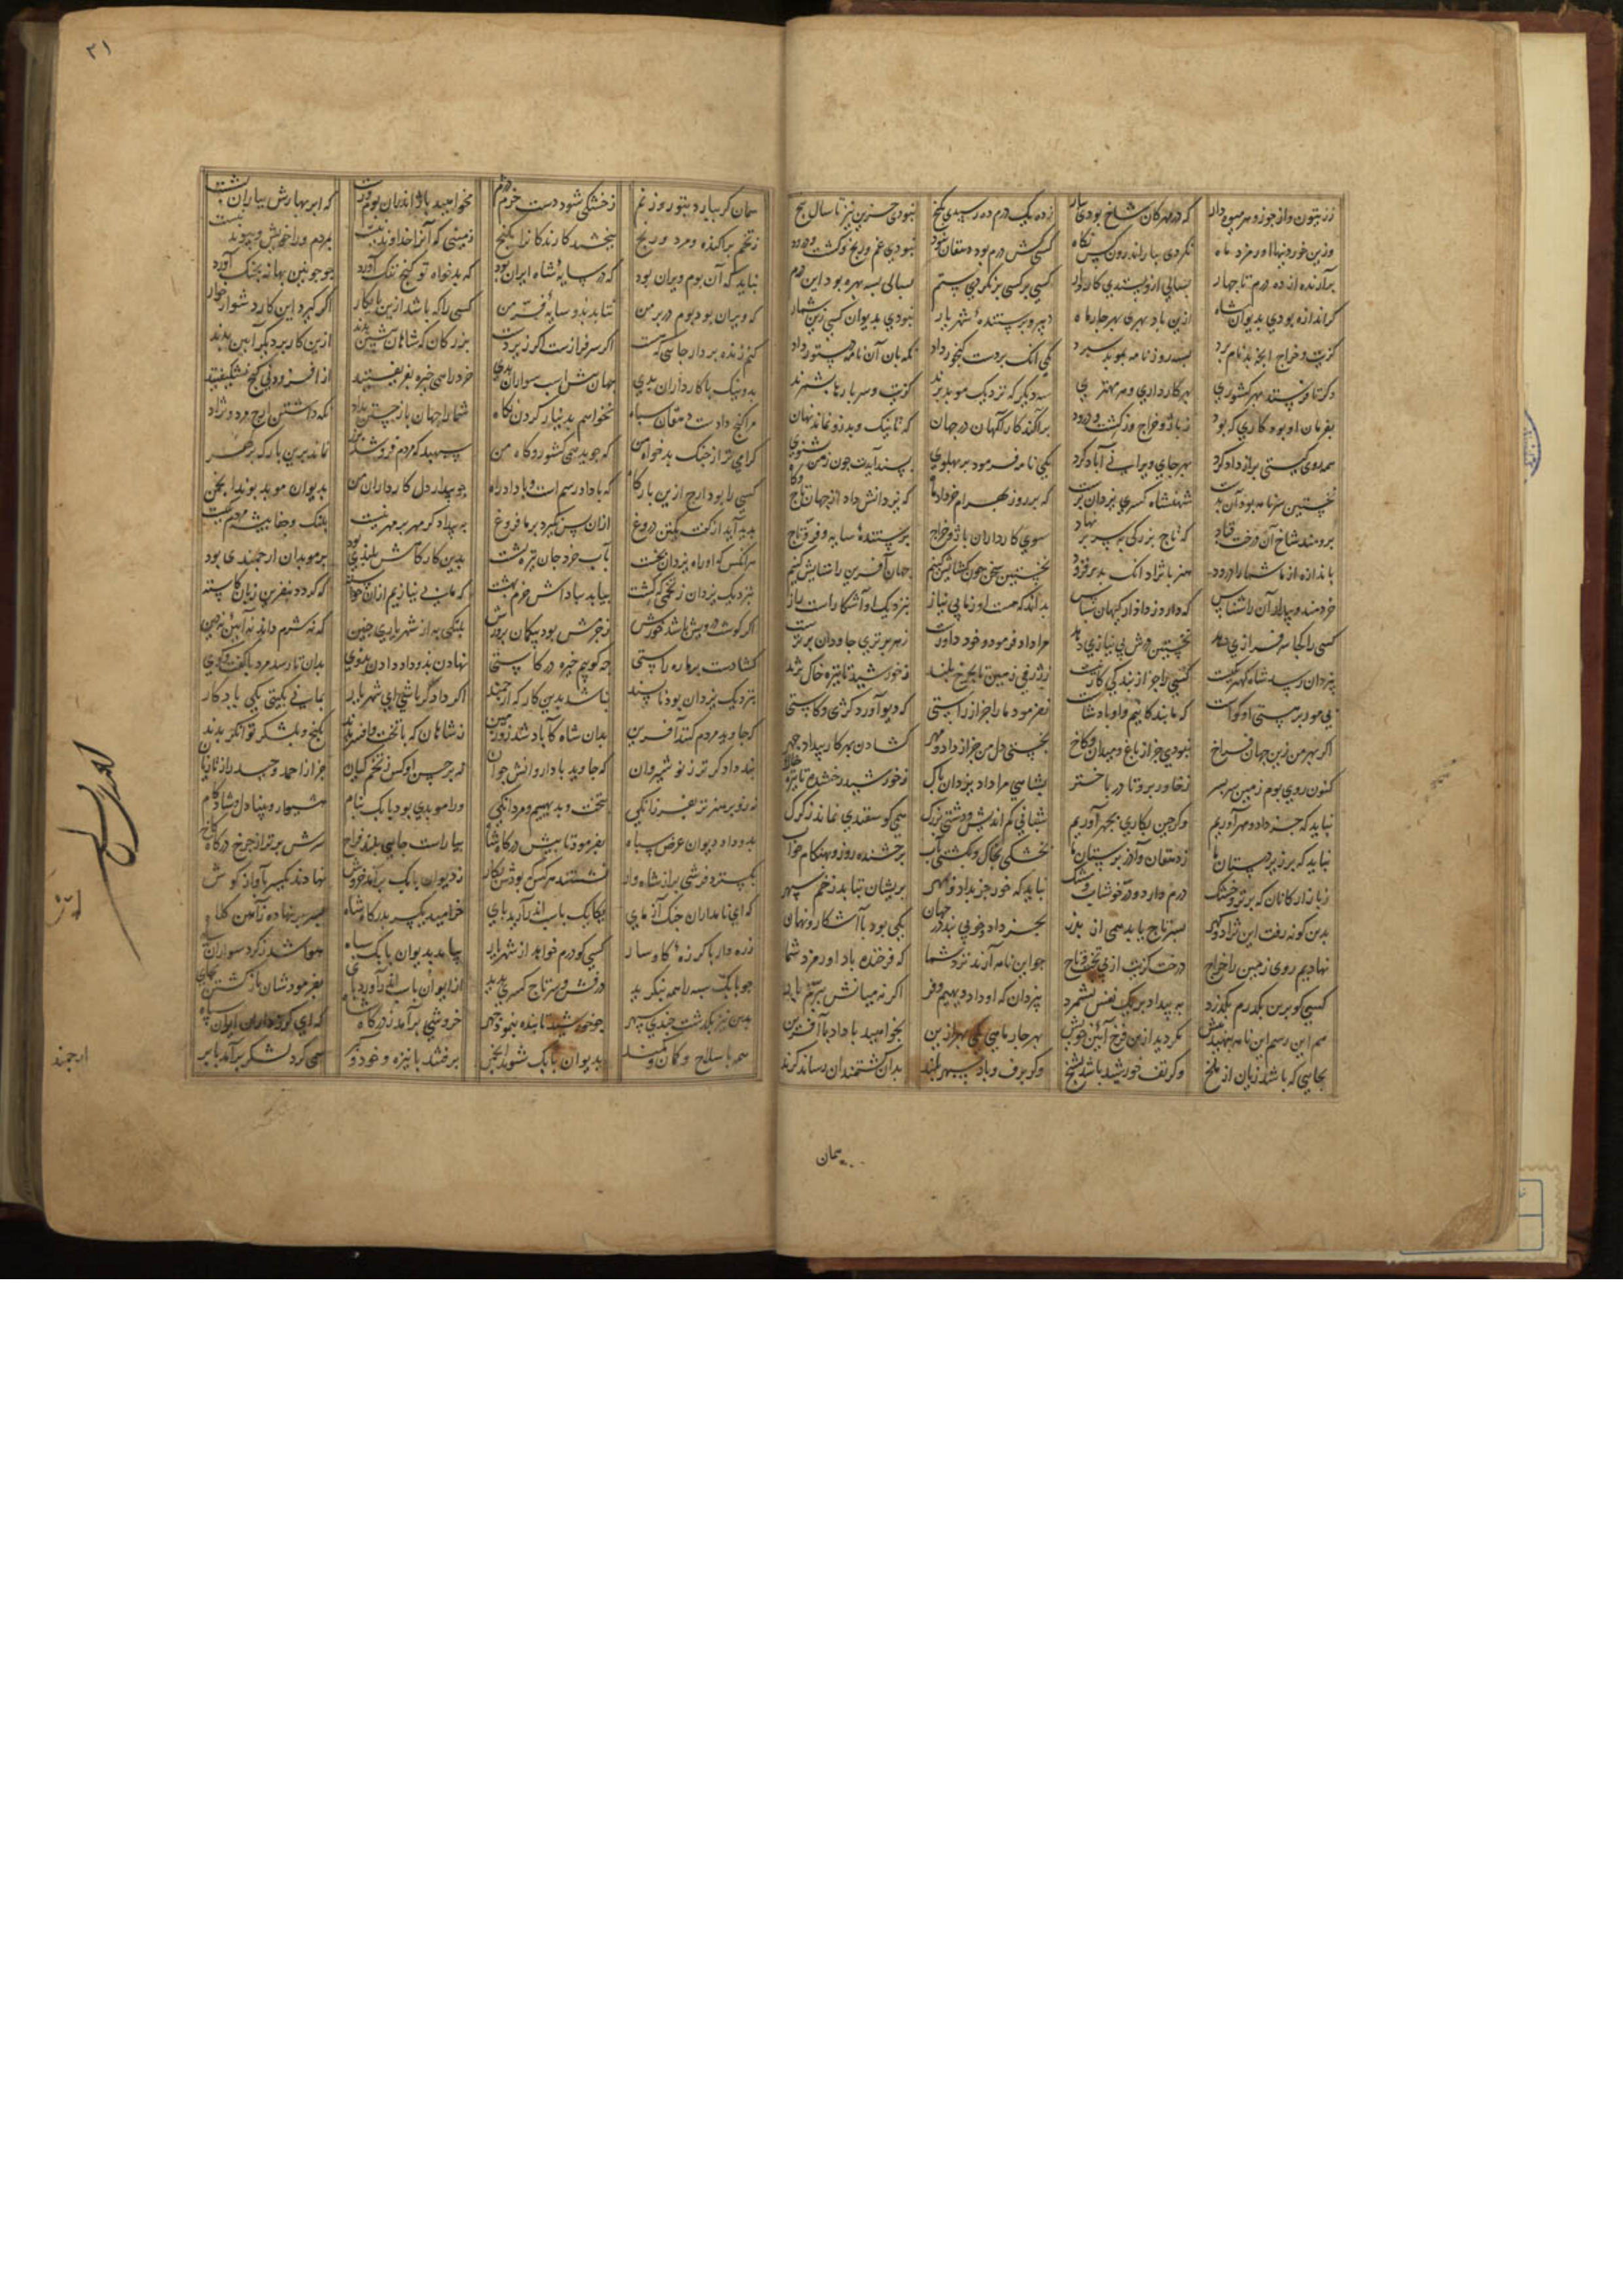 ز زیتون و از جوز و هر میوه دار که در مهرکان شاخ بودی ببار ز ده یک درم ده رسیدی بکنج نبودی جزین نیز تا سال پنج
وزین خوردنیها اورمزد ماه نکردی بباراندرون کس نکاه کسی کش درم بود دهقان نبود نبودی غم و رنج و کشت و درود
برآرنده از ده درم تا چهار بسالی ازو بستدی کاردار کسی بر کسی بر نکردی ستم بسالی بسه بهره بود این درم
کرانداره بودی بدیوان شاه ازین باد بهری بهر چارماه دبیر و پرستنده شهریار نبودی بدیوان کسی زین شمار
کزیت و خراج انچه بد نام برد بسه روزنامه بموبد سپرد یکی آنک بردست کنجور داد نکهبان آن نامه دستور داد
دکر تا فرستند بهر کشوری بهر کارداری و هر مهتری سه دیکر که نزدیک موبد برند کزیت و سر بارها بشمرند
بفرمان او بود کاری که بود ز باژ و خراج و ز کشت و درود پراکند کارآکهان در جهان که تا نیک و بد زو نماند نهان
همه روی کیتی پر از داد کرد بهر جای ویرانی آباد کرد یکی نامه فرمود بر پهلوی پسند آیدت چون ز من بشنوی
نخستین سر نامه بود آن بدست شهنشاه کسری یزدان پرست که بر روز بهرام خردادماه که یزدانش داد از جهان تاج و کاه
برومند شاخ آن درخت قباد که تاج بزرکی بسر بر نهاد سوی کارداران باژ و خراج پرستنده سایه و فر و تاج
باندازه از ما شما را درود هنر با نژاد آنک بد بر فزود نخستین سخن چون کشایش کنیم جهان آفرین را ستایش کنیم
خردمند و بیدار آن را شناس که دارد ز دادار کیهان سپاس بداند که هست او ز ما بی نیاز بنزدیک او آشکار است راز
کسی را کجا سرفرازی دهد نخستین ورا بی نیازی دهد مرا داد فرمود و خود داورست ز هر برتری جاودان برترست
بیزدان رسد شاه و کهتر یکیست کسی را جز از بندکی کار نیست ز ژرفی زمین تا بچرخ بلند ز خورشید تا تیره خاک نژند
پی مور بر هستی او کواست که ما بندکانیم و او پادشاست نفرمود ما را جز از راستی که دیو آورد کژی و کاستی
اکر بهر من زین جهان فراخ نبودی جز از باغ و میدان و کاخ نجستی دل من جز از داد و مهر کشادن بهر کار بیدار چهر
کنون روی بوم زمین سر بسر ز خاور برو تا در باختر بشاهی مرا داد یزدان پاک ز خورشید رخشنده تا تیره خاک
نباید که جز داد و مهر آوریم وکر چین بکاری بچهر آوریم شبانی کم اندیش و دشتی بزرک همی کوسفندی نماند ز کرک
نباید که بر زیردستان ما ز دهقان و از در پرستان ما بخشکی بخاک و بکشتی بآب برخشنده روز و بهنکام خواب
ز بازارکانان که بر تر و خشک درم دارد و در خوشاب و مشک نباید که خور جز بداد و بمهر بریشان نتابد ز خم سپهر
بدین کونه رفت این نژاد و کهر بسر تاج یابد همی از پدر بجز داد و خوبی نبد در جهان یکی بود با آشکارا نهان
نهادیم روی زمین را خراج درخت کزیت از پی تخت و تاج چو این نامه آرند نزد شما که فرخنده باد اورمزد شما
کسی کو برین یکدرم بکذرد به بیداد بر یک نفس بشمرد بیزدان که او داد دیهیم و فر اکر نه میانش ببرم بار
هم این رسم این نامه بنهید پیش نکردید ازین فرخ آئین خویش بهر چار ماهی یکی بهر ازین بخواهید با داد و با آفرین
بجایی که باشد زیان از ملخ وکر تف خورشید باشد بشخ وکر برف و باد سپهر بلند بدان کشتمندان رساند کزند
همان
۲۱
همان کر نبارد بنوروز نم ز خشکی شود دست خرم دژم مخواهید باژ اندران بوم و رست که ابر بهارش بباران نشست
ز تخم پراکنده و مرد و رنج ببخشید کارندکان را ز کنج زمینی که آنرا خداوند نیست بمرد و ورا خویش و پیوند نیست
نباید که آن بوم ویران بود که در سایه شاه ایران بود که بدخواه تو کنج ننک آورد چو چونین بهانه بچنک آورد
که ویران بود بوم در بر من نتابد بدو سایه فر من کسی را که باشد ازین پایکار اکر کیرد این کار دشوار خوار
کنم زنده بردار جایی که هست اکر سرفرازست اکر زیردست بزرکان که شاهان پیشین بدند ازین کار بر دیکر آیین بدند
بد و نیک با کارداران بدی جهان پیش اسب سواران بدی خرد را همی خیره بفریفتند از افزودنی کنج نشکیفتند
مرا کنج دادست و دهقان سپاه نخواهم بدینار کردن نکاه شما را جهان بازجستن بداد نکه داشتن ارج مرد و نژاد
کرامی تر از جنک بدخواه من که جوید همی کشور و کاه من سپهبد که مردم فروشد بزر نماند برین بارکه بر
کسی را بود ارج ازین بارکاه که با داد رسم است و با داد راه چو بیدار دل کارداران من بدیوان موبد بوند انجمن
پدید آید از کفت یک تن دروغ ازان پس نکیرد بر ما فروغ به بیدادکر مر مرا مهر نیست پلنک و جفا پیشه مردم یکیست
هرآنکس که او راه یزدان بجست بآب خرد جان تیره بشست بدین کارکاهش بلندی بود بر موبدان ارجمندی بود
بنزدیک یزدان ز تخمی که کشت بیابد بپاداش خرم بهشت که ما بی نیازیم ازان خواسته که کردد بنفرین زبان کاسته
کرا کوشت درویش باشد خورش ز چرمش بود بیکمان پرورش پلنکی به از شهریاری چنین که نه شرم دارد نه آئین نه دین
کشادست بر ما ره راستی چه کوییم خیره در کاستی نهادن بد و داد دادن بروی بدان تا رسد مرد با کفت و کوی
بنزدیک یزدان بود ناپسند نباشد بدین کارکه ارجمند اکر دادکر باشی ای شهریار بمانی بکیتی یکی یادکار
که جاوید مردم کنند آفرین بدان شاه کآباد شد زو زمین ز شاهان که با تخت و افسر بدند بکنج و بلشکر توانکر بدند
نبد دادکرتر ز نوشیروان که جاوید بادا روانش جوان نه بر چین او کس ز تخم کیان
نه زو پرهنرتر بفرزانکی بتخت و بدیهیم و مردانکی ورا موبدی بود بابک بنام هشیوار و بینا دل و شادکام
بدو داد دیوان عرض سپاه بفرمود تا پیش درکاه شاه بیاراست جایی بلند و فراخ سرش برتر از چرخ درکاه کاخ
بکسترد فرشی برو شاهوار نشستند هر کس که بودش بکار ز دیوان بابک برآمد خروش نهادند یکسر بآواز کوش
که ای نامداران جنک آزمای یکایک باسب اندر آرید پای خرامید یکسر بدرکاه شاه بسر بر نهاده ز آهن کلاه
زره دار با کرزه کاوسار کسی کو درم خواهد از شهریار بیامد بدیوان بابک سپاه هوا شد ز کرد سواران سیاه
چو بابک سپه را همه بنکرید درفش و سر تاج کسری ندید از ایوان باسب اندر آورد پای بفرمودشان بازکشتن بجای
بدین نیز بکذشت چندی سپهر چو خورشید تابنده بنمود چهر خروشی برآمد ز درکاه شاه که ای کرزداران ایران سپاه
همه با سلاح و کمان و کمند بدیوان بابک شوید انجمن برفتند با نیزه و خود و کبر همی کرد لشکر برآمد بابر
ارجمند